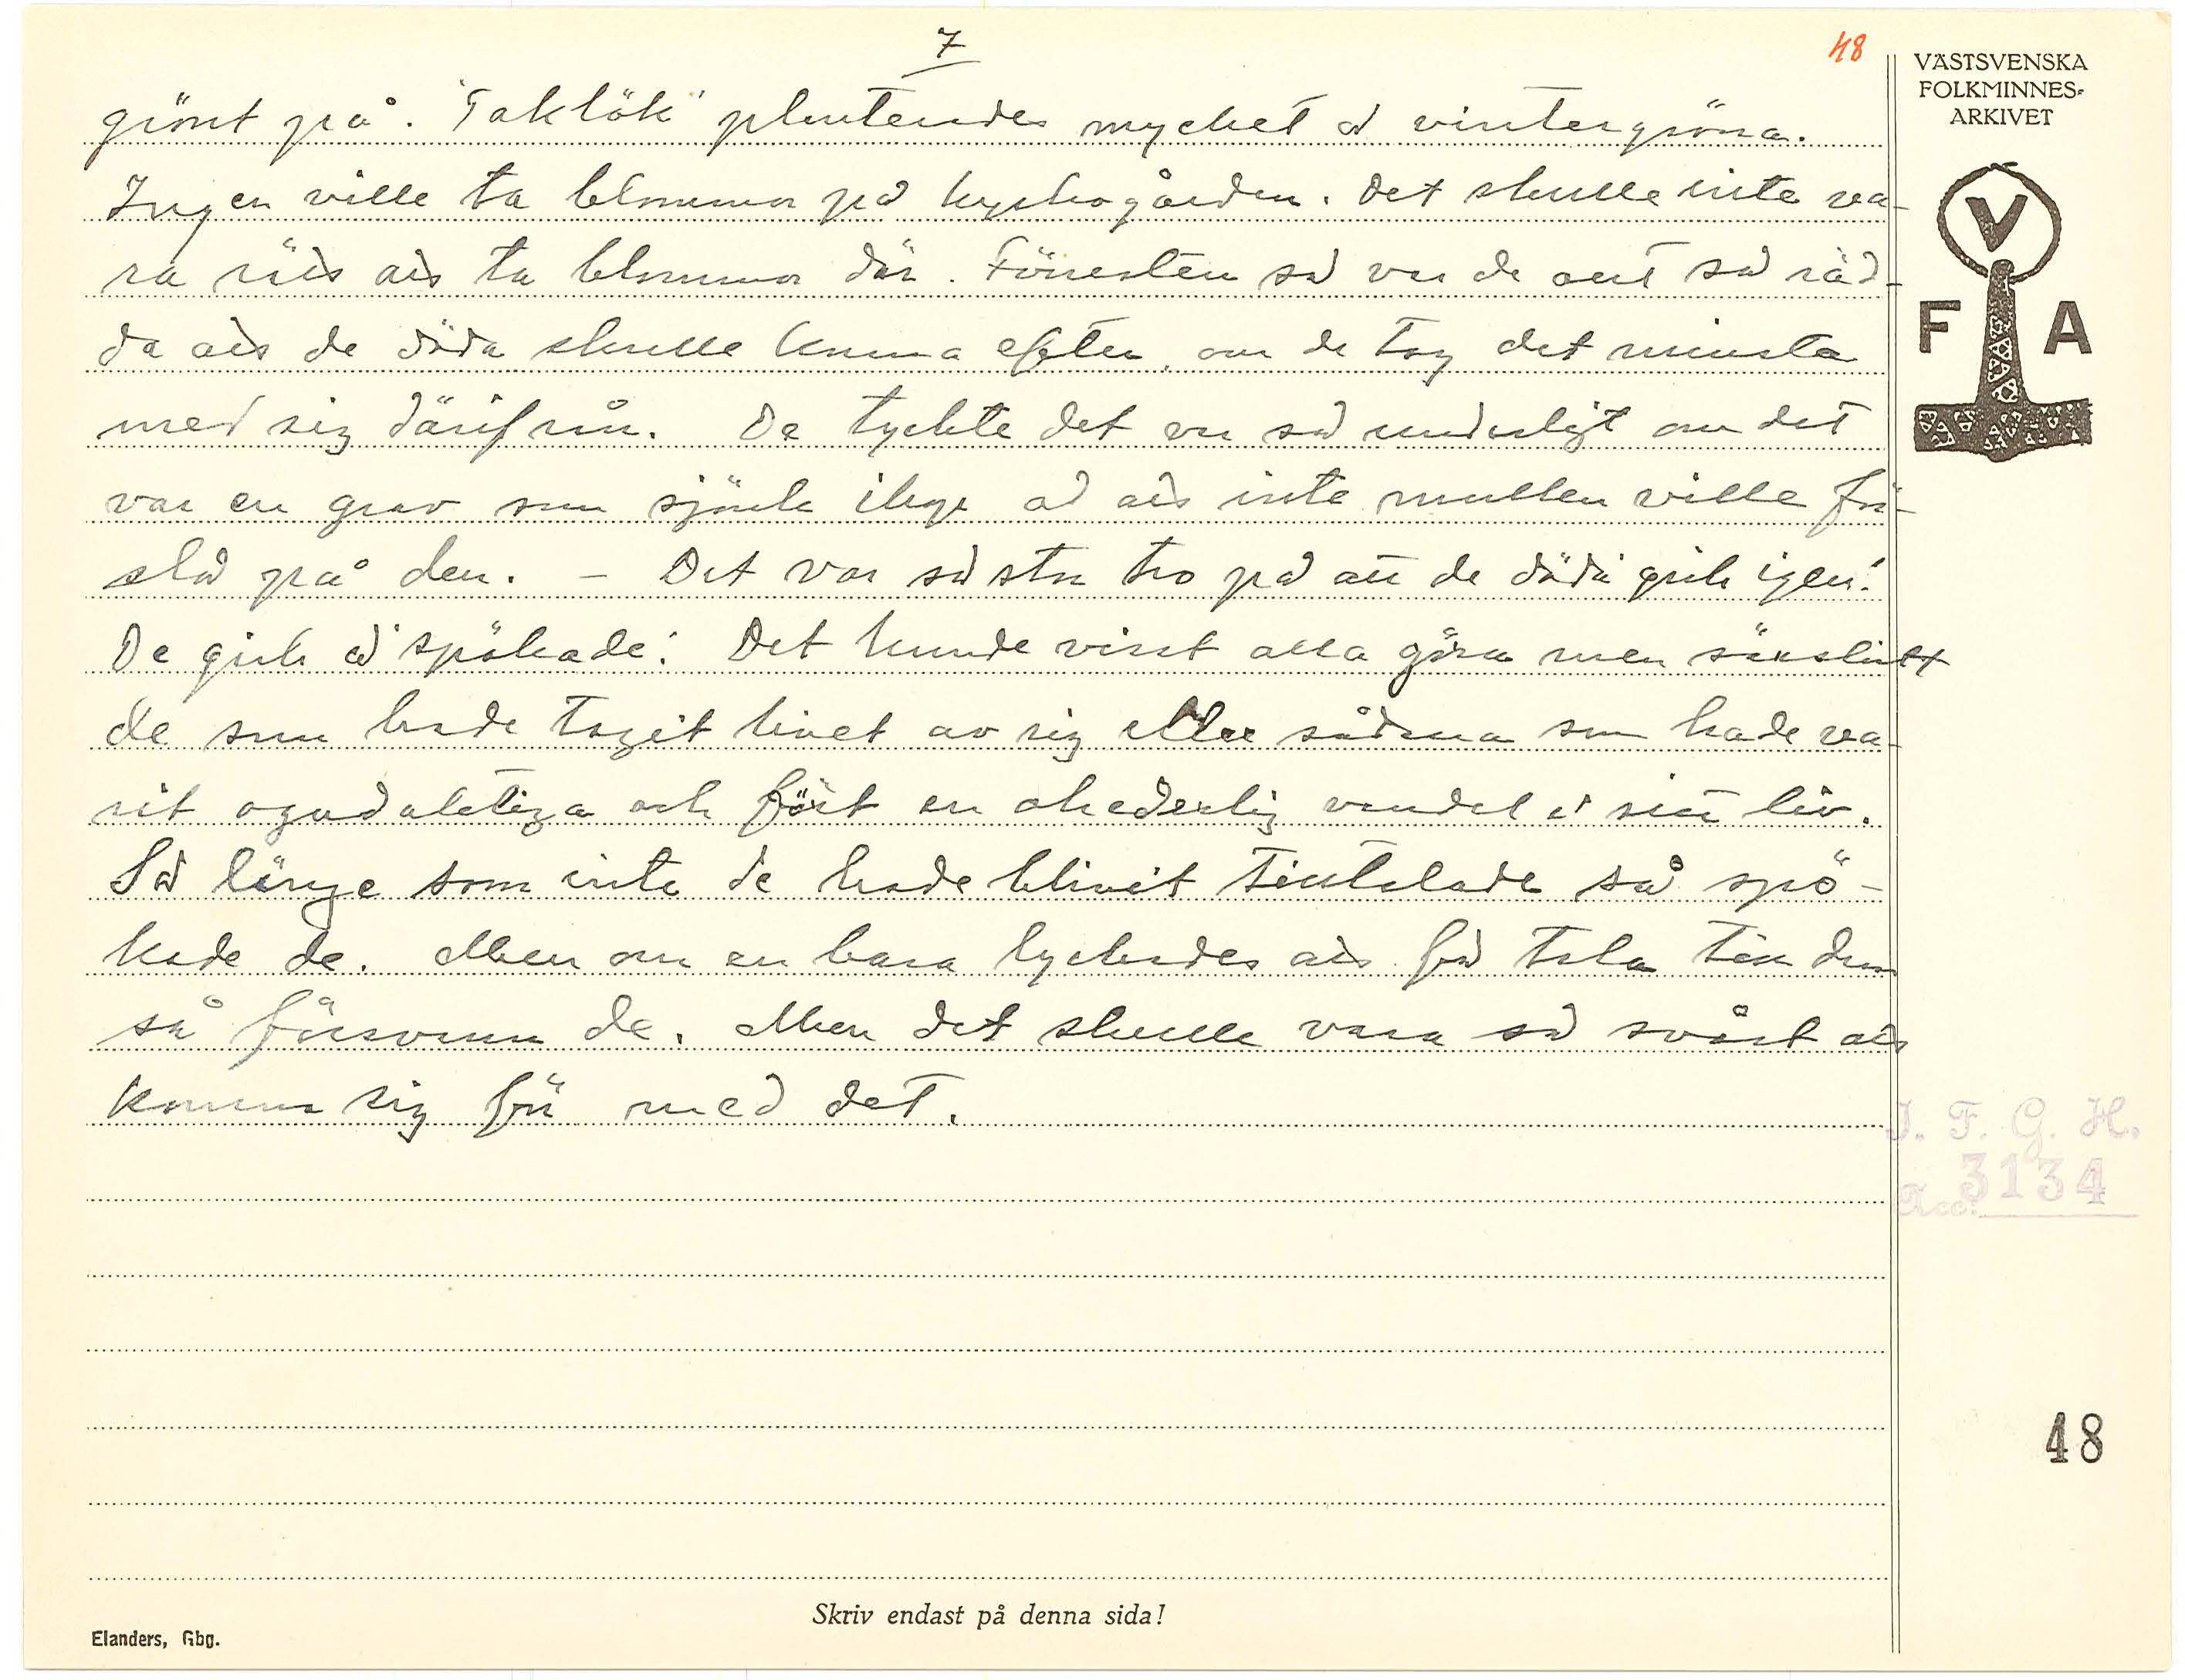 7
48
grönt på. "Taklök" plantendes mycket å vintergröna.
Ingen ville ta blommor på kyrkogården. Det skulle inte va-
ra rätt att ta blommor där. Föresten så var de allt så räd-
da att de döda skulle komma efter, om de tog det minsta
med sig därifrån. De tyckte det var så underligt om det
var en grav som sjönk ihop å att inte mullen ville för-
slå på den. — Det var så stor tro på att de döda "gick igen".
De gick å "spökade". Det kunde visst alla göra men särskilt
de som hade tagit livet av sig eller sådana som hade va-
rit ogudaktiga och fört en ohederlig vandel i sitt liv.
Så länge som inte de hade blivit tilltalade så spö-
kade de. Men om en bara lyckades att få tala till dem
så försvann de. Men det skulle vara så svårt att
komma sig för med det.
VÄSTSVENSKA
FOLKMINNES-
ARKIVET
V
F A
I. F. G. H.
Acc. 3134
48
Skriv endast på denna sida!
Elanders, Gbg.